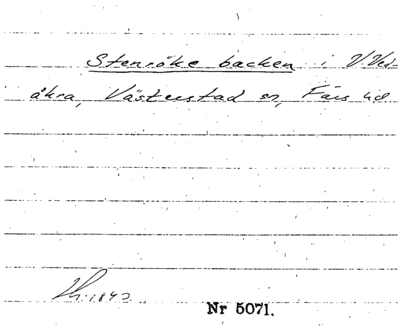 Stenröke backen i V Vei-
åkra, Västerstad sn, Färs hd
1843
Nr 5071.